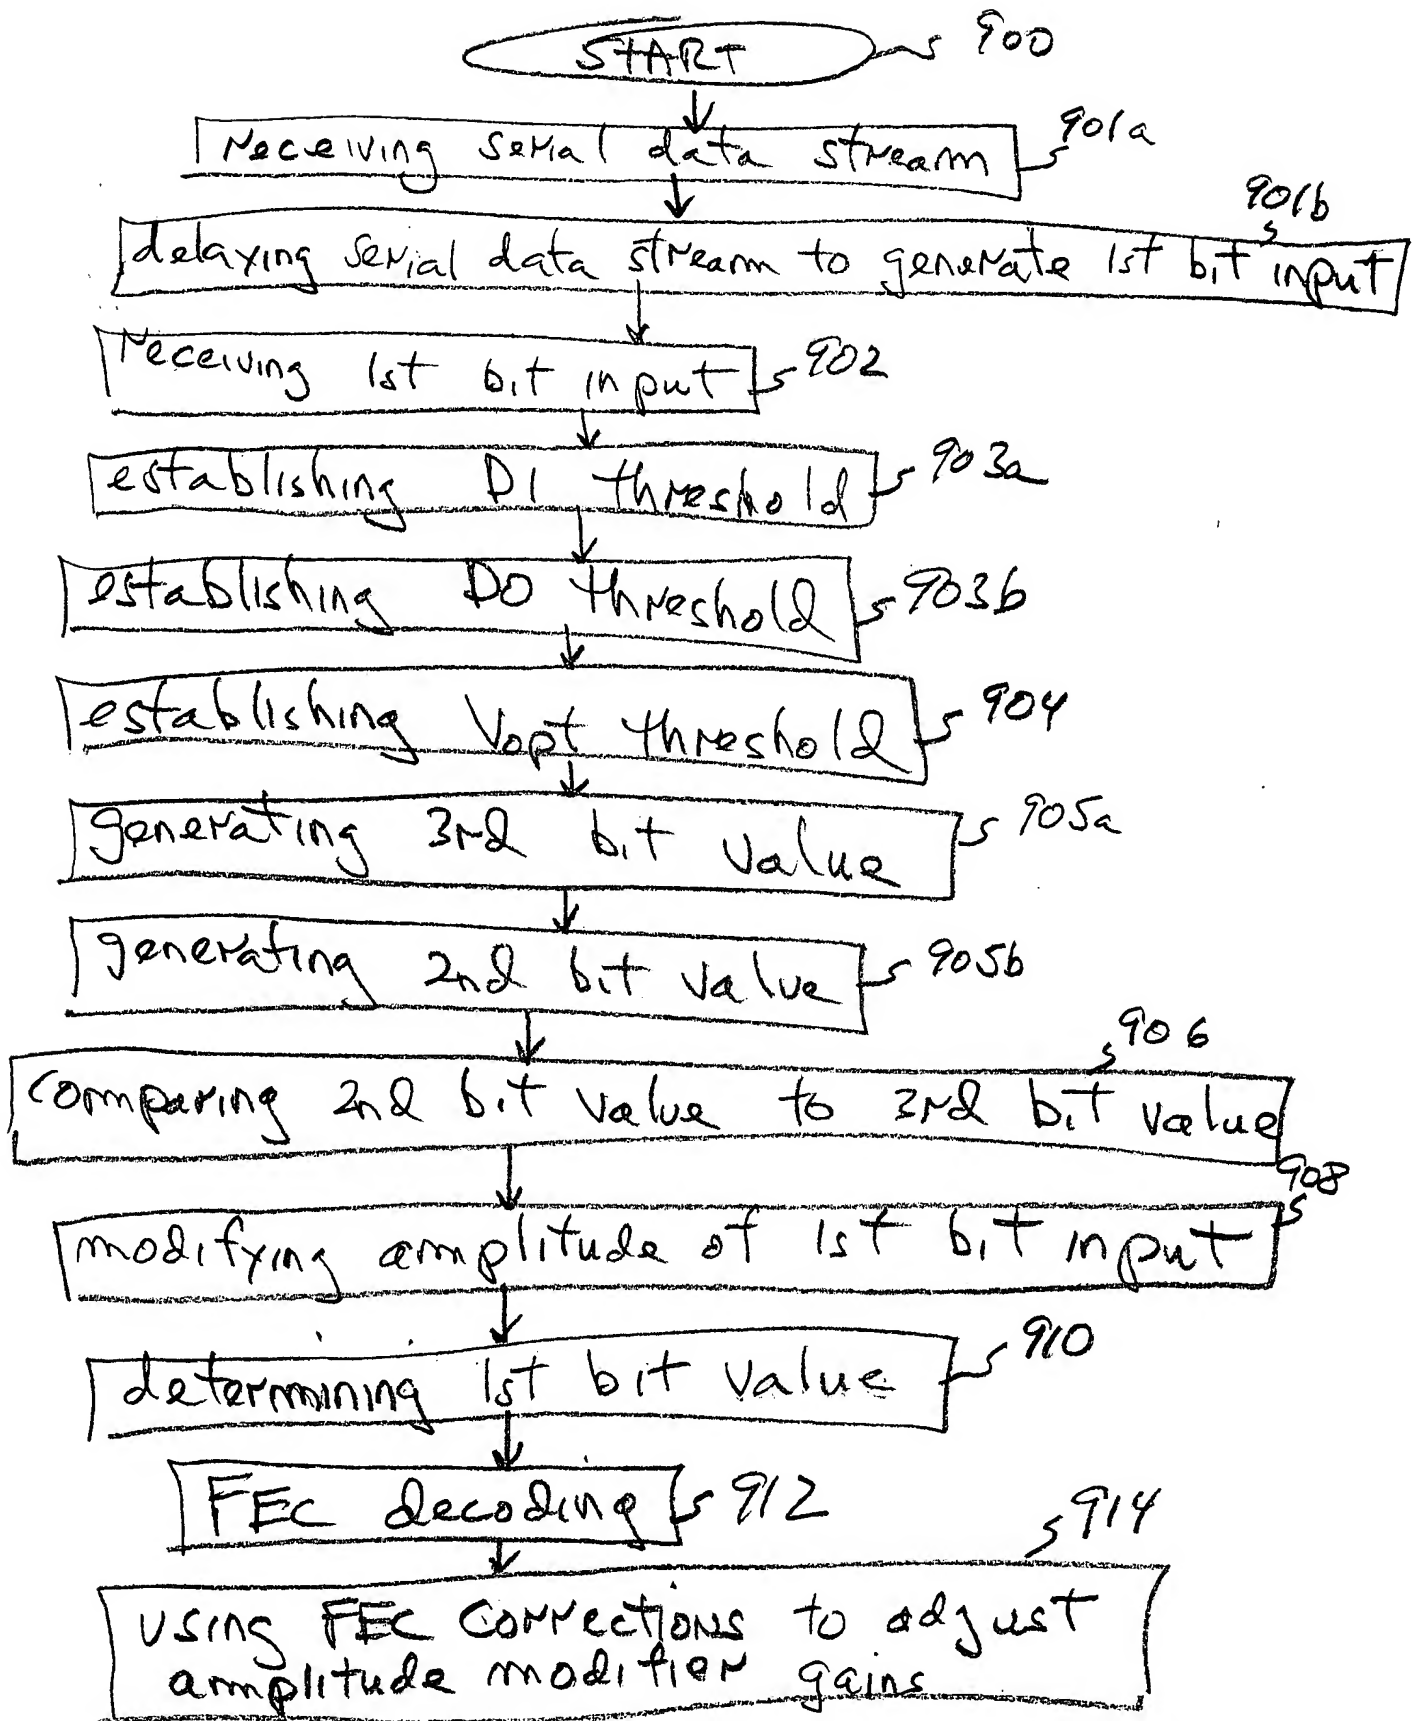 START 900
receiving serial data stream 901a
901b
delaying serial data stream to generate 1st bit input
receiving 1st bit input 902
establishing D1 threshold 903a
establishing D0 threshold 903b
establishing Vopt threshold 904
generating 3rd bit value 905a
generating 2nd bit value 905b
906
comparing 2nd bit value to 3rd bit value
908
modifying amplitude of 1st bit input
determining 1st bit value 910
FEC decoding 912
914
using FEC corrections to adjust
amplitude modifier gains